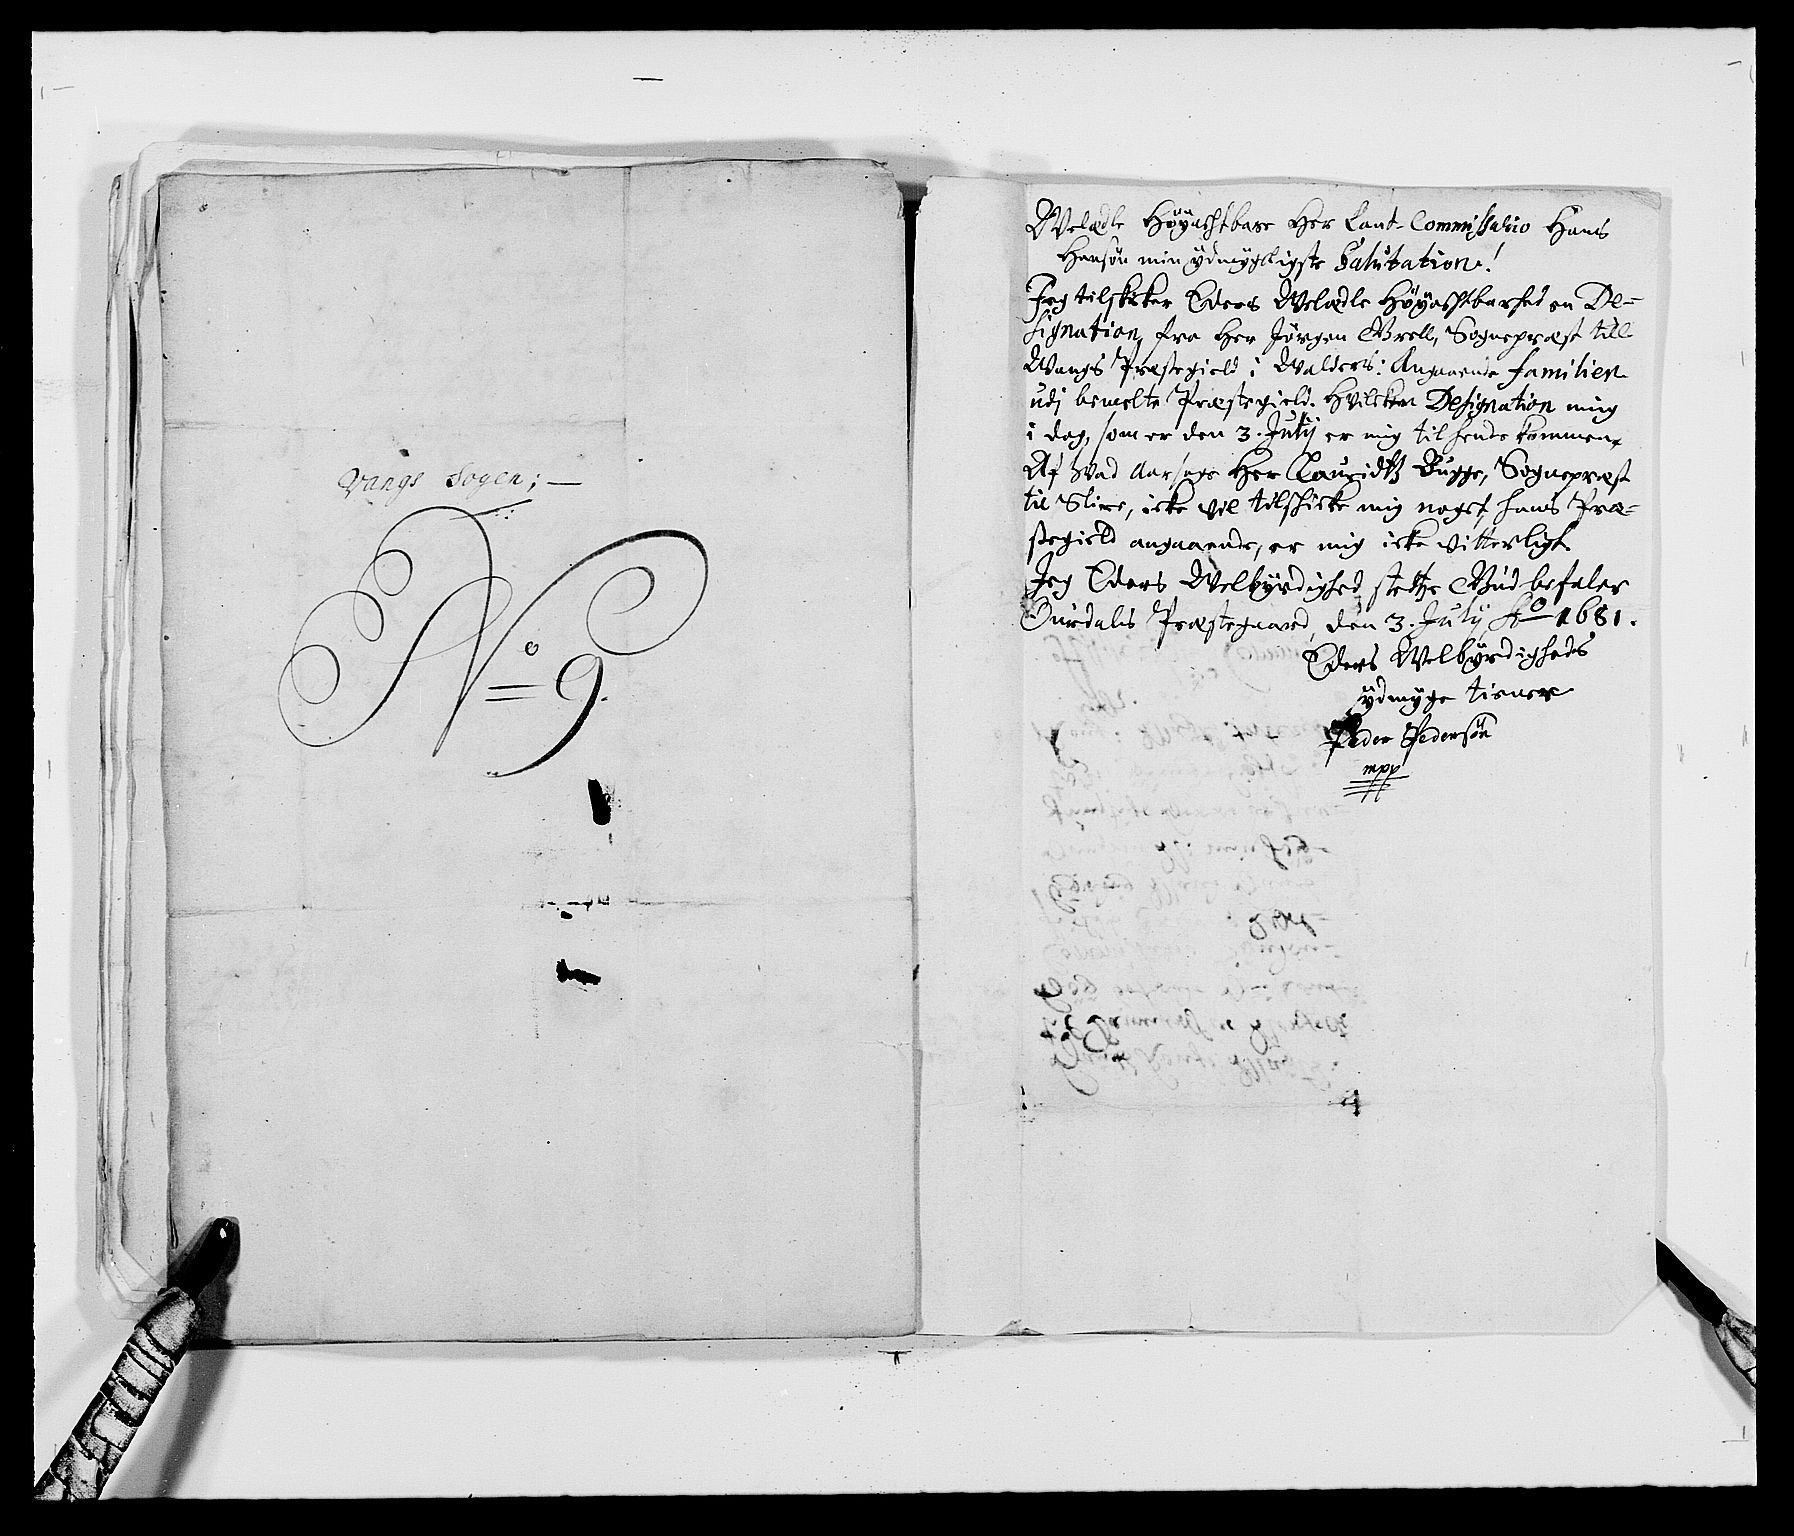 Vangs Sogen; —
No = 9.
Welædle Höyachtbare Her Cant-Commissario Hans
Hansön min ÿdmÿgligste Salutation!
Jeg tilskicker Eders Welædle Höyachtbarhed en De=
signation, fra Her Jörgen Grell, Sognepræst till
Wangs Præstegield i Walders: Angaaende familien
udj bemelte Præstegield. Hvilcken Designation mig
i dag, som er den 3. Julij er mig til hende kommen,
Af Hvad Aarsage Her Lauridtz Bugge, Sognepræst
til Slire, icke vil tilskicke mig noget, hans Præ=
stegield angaaende, er mig icke vitterligt.
Jeg Eders Welbÿrdighed stetze Gud befaler
Ourdals Præstegaard, den 3. Julÿ Ao 1681.
Eders Welbÿrdigheds
ÿdmÿge tiener
Peder Pedersön
mpp